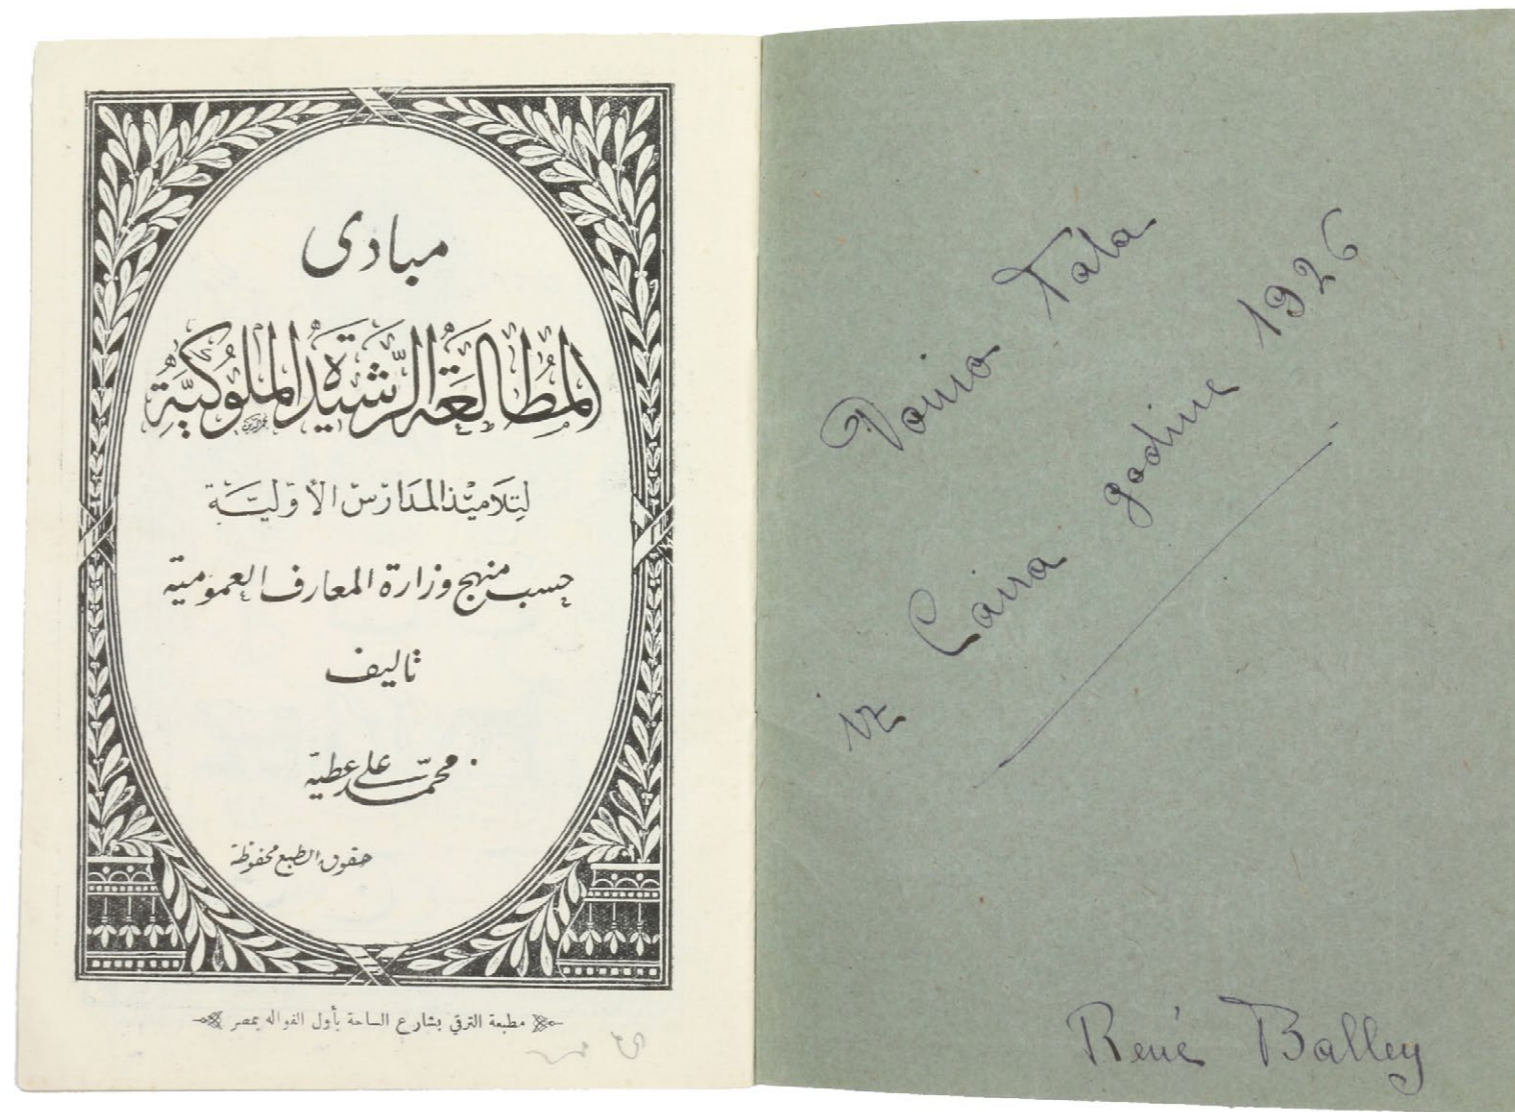 مبادى
المُطالعَة الرَّشيدَة الملُوكيَّة
لِتلاميْذ المدَارسْ الأوّليَّة
حسب منهج وزارة المعارف العمومية
تاليف
محمّد على عطيّة
حقوق الطبع محفوظة
مطبعة الترقي بشارع الساحة بأول الفواله بمصر
Donio Tata
iz Caira godine 1926
René Balley